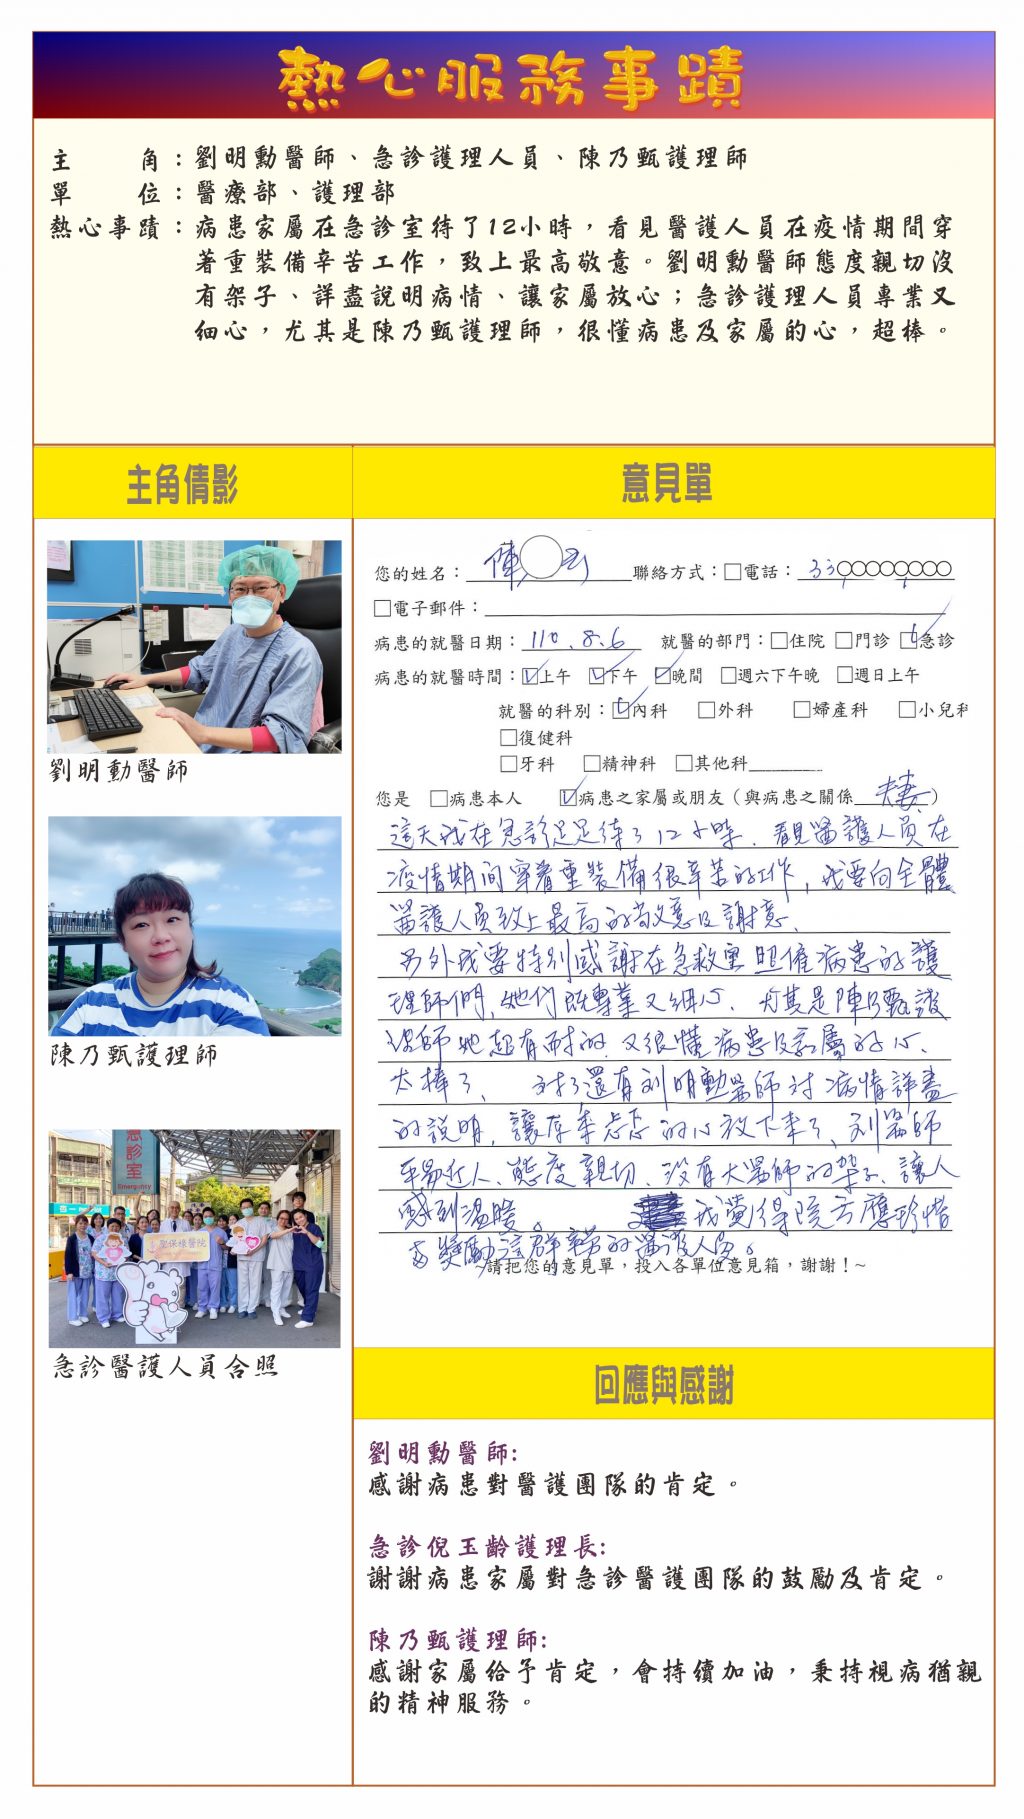 熱心服務事蹟
主角：劉明勳醫師、急診護理人員、陳乃甄護理師
單位：醫療部、護理部
熱心事蹟：病患家屬在急診室待了12小時，看見醫護人員在疫情期間穿
著重裝備辛苦工作，致上最高敬意。劉明勳醫師態度親切沒
有架子、詳盡說明病情、讓家屬放心；急診護理人員專業又
細心，尤其是陳乃甄護理師，很懂病患及家屬的心，超棒。
主角倩影
劉明勳醫師
陳乃甄護理師
急診室
Emergency
聖保祿醫院
急診醫護人員合照
意見單
您的姓名：陳○ 聯絡方式：□電話：33○○○○○○○○
□電子郵件：
病患的就醫日期：110.8.6 就醫的部門：□住院 □門診 ☑急診
病患的就醫時間：☑上午 ☑下午 ☑晚間 □週六下午晚 □週日上午
就醫的科別：☑內科 □外科 □婦產科 □小兒科
□復健科
□牙科 □精神科 □其他科
您是 □病患本人 ☑病患之家屬或朋友（與病患之關係夫妻）
這天我在急診足足待了12小時、看見醫護人員在
疫情期间穿着重裝備很辛苦的工作，我要向全體
醫護人員致上最高的敬意及謝意、
另外我要特別感謝在急救室照僱病患的護
理師們，她们既專業又細心、尤其是陳乃甄護
理師她超有耐的，又很懂病患及家屬的心、
太棒了、 对了還有刘明勳醫師对病情詳盡
的說明，讓原本忐忑的心放下来了，刘醫師
平易近人、態度親切、沒有大醫師的架子、讓人
感到溫暖。 我覺得院方應珍惜
並獎勵這群辛苦的醫護人員。
~請把您的意見單，投入各單位意見箱，謝謝！~
回應與感謝
劉明勳醫師:
感謝病患對醫護團隊的肯定。
急診倪玉齡護理長:
謝謝病患家屬對急診醫護團隊的鼓勵及肯定。
陳乃甄護理師:
感謝家屬給予肯定，會持續加油，秉持視病猶親
的精神服務。